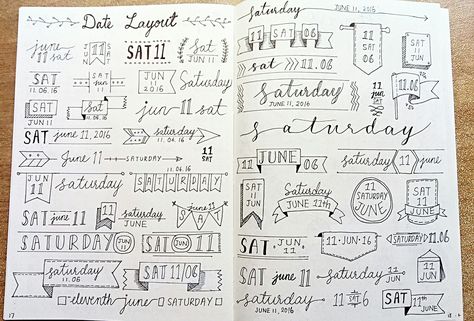 Date Layout
june 11 sat
JUN 11 SAT
SAT 11
Sat JUN 11
SAT 11.06.16
SAT JUN 11
JUN 20 11
SATURDAY
SAT JUN 11
SAT 11.06.16
jun 11 sat
SAT june 11, 2016
saturday 11.06.16
June 11 SATURDAY 11.06.16
11 SAT
JUN 11
saturday
SATURDAY
SAT june 11
saturday JUNE 11, 2016
june 11 SAT
SATURDAY JUN 11
SAT 11
saturday 11.06
SAT 11/06
eleventh june SATURDAY
17
saturday JUNE 11, 2016
11
11 SAT 06
11 SAT 06
SATURDAY JUN 11
sat 11.06
Saturday JUNE 11, 2016
11 jun SAT
11.06
saturday
11 JUNE 06
saturday 11 june
SAT JUN 11
Saturday JUNE 11th
11 SATURDAY JUNE
SAT 11 JUNE
SAT. JUN. 11
11·JUN·16
SATURDAY 11.06
SAT june 11
saturday june 11
11 JUN
saturday JUNE 11, 2016
11 SAT 6
SAT
11th JUNE
18